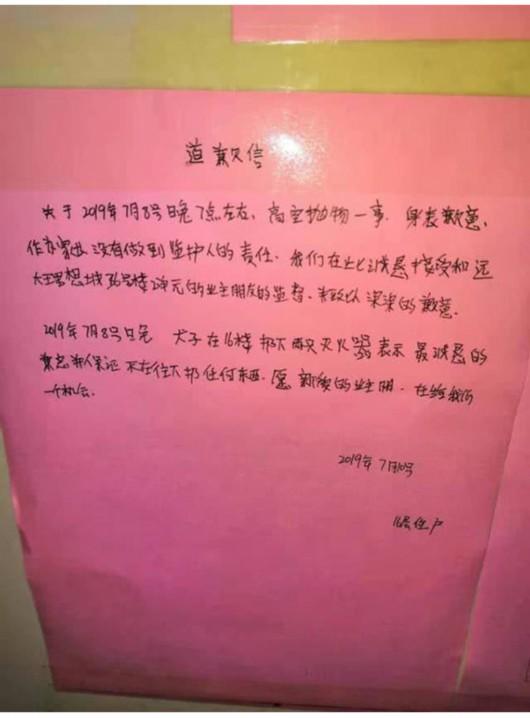 道歉信
关于2019年7月8号日晚7点左右,高空抛物一事.身表歉意,
作为家长没有做到监护人的责任.我们在此诚恳接受和远
大王思想城36号楼2单元的业主朋友的监督.并致以深深的歉意.
2019年7月8号日晚 犬子在16楼扔下两只灭火器表示最诚恳的
歉意并保证不在往下扔任何东西.愿 的业主朋.在给我们
一个机会.
2019年7月10号
16层住户